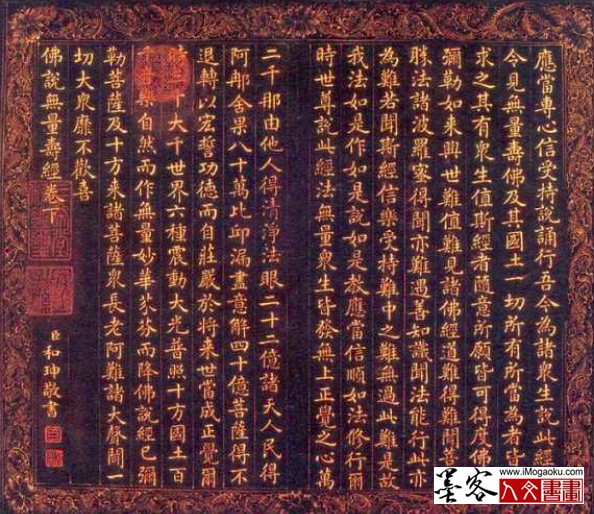 應當專心信受持說誦行吾今為諸衆生說此經
今見無量壽佛及其國土一切所有所當為者皆
求之其有衆生值斯經者隨意所願皆可得度佛
彌勒如來興世難值難見諸佛經道難得難聞菩
勝法諸波羅蜜得聞亦難遇善知識聞法能行此亦
為難若聞斯經信樂受持難中之難無過此難是故
我法如是作如是說如是教應當信順如法修行爾
時世尊說此經法無量衆生皆發無上正覺之心萬
二千那由他人得清淨法眼二十二億諸天人民得
阿那含果八十萬比邱漏盡意解四十億菩薩得不
退轉以宏誓功德而自莊嚴於將來世當成正覺爾
時千大千世界六種震動大光普照十方國土百
千音樂自然而作無量妙華芬芬而降佛說經已彌
勒菩薩及十方來諸菩薩衆長老阿難諸大聲聞一
切大衆靡不歡喜
佛說無量壽經卷下
臣和珅敬書
墨客
www.iMogaoku.com
人文書畫